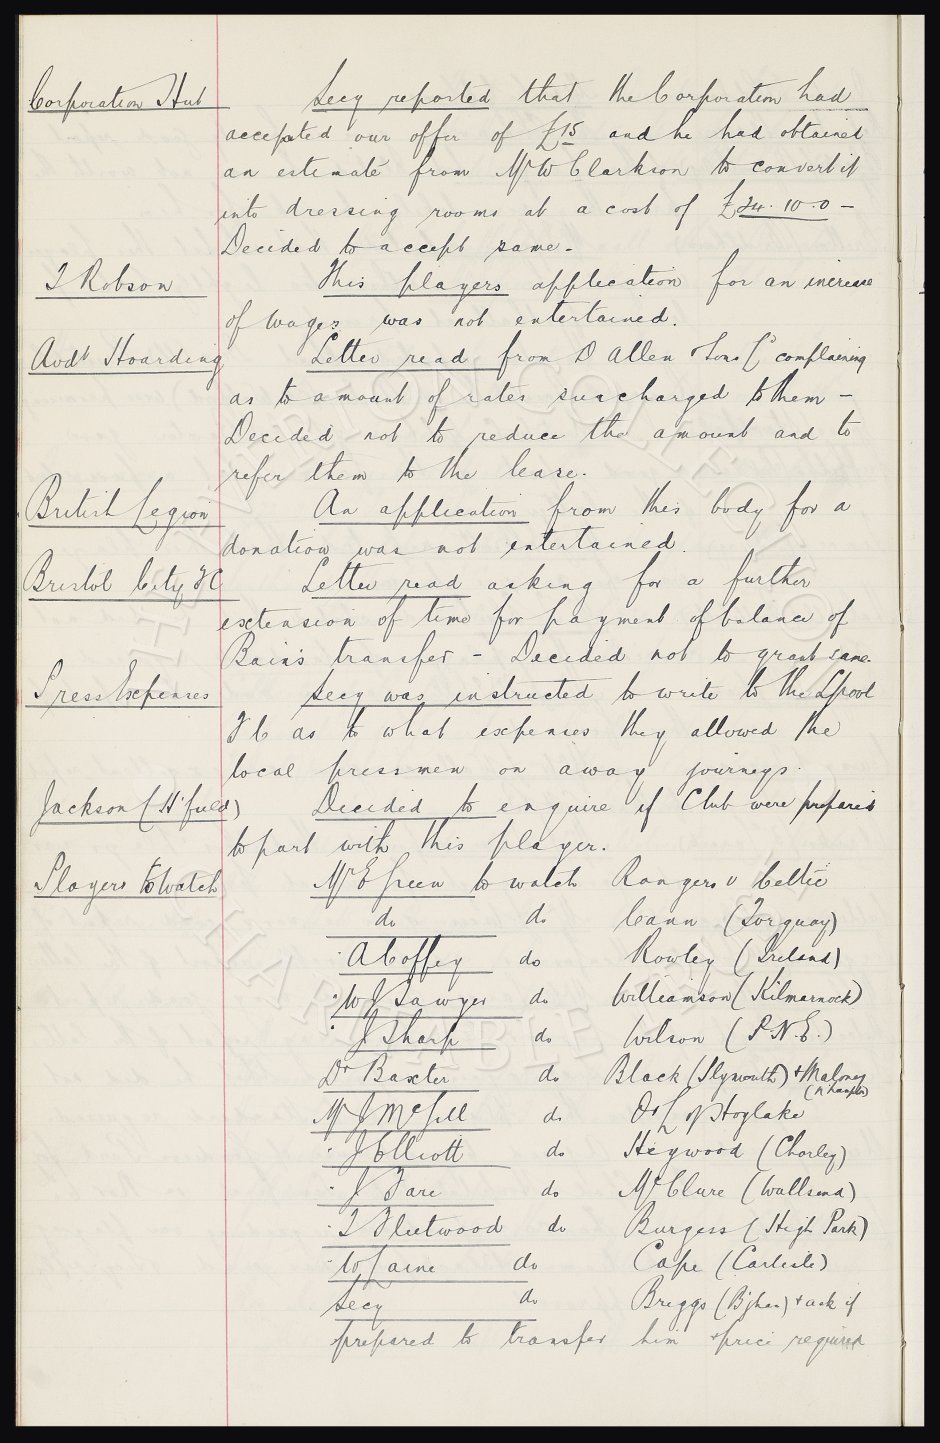 Corporation Hut Secy reported that the Corporation had
accepted our offer of £15 and he had obtained
an estimate from Mr W Clarkson to convert it
into dressing rooms at a cost of £24.10.0 -
Decided to accept same.
T Robson This players application for an increase
of wages was not entertained.
Avdt Hoarding Letter read from D Allen & Sons Co complaining
as to amount of rates surcharged to them -
Decided not to reduce the amount and to
refer them to the lease.
British Legion An application from this body for a
donation was not entertained.
Bristol City FC Letter read asking for a further
extension of time for payment of balance of
Bain's transfer - Decided not to grant same.
Press Expenses Secy was instructed to write to the Lpool
F C as to what expenses they allowed the
local pressmen on away journeys.
Jackson (H'field) Decided to enquire if Club were prepared
to part with this player.
Players to Watch Mr E Green to watch Rangers v Celtic
do do Cann (Torquay)
" A Coffey do Rowley (Ireland)
" W J Sawyer do Williamson (Kilmarnock)
" J Sharp do Wilson (P.N.E.)
Dr Baxter do Black (Plymouth) & Maloney
(N'hampton)
Mr J McGill do of Hoylake
" J Elliott do Heywood (Chorley)
" J Fare do McClure (Wallsend)
" T Fleetwood do Burgess (High Park)
" W Caine do Cape (Carlisle)
Secy do Briggs (B'ghan) & ask if
prepared to transfer him & price required
THE EVERTON COLLECTION
CHARITABLE